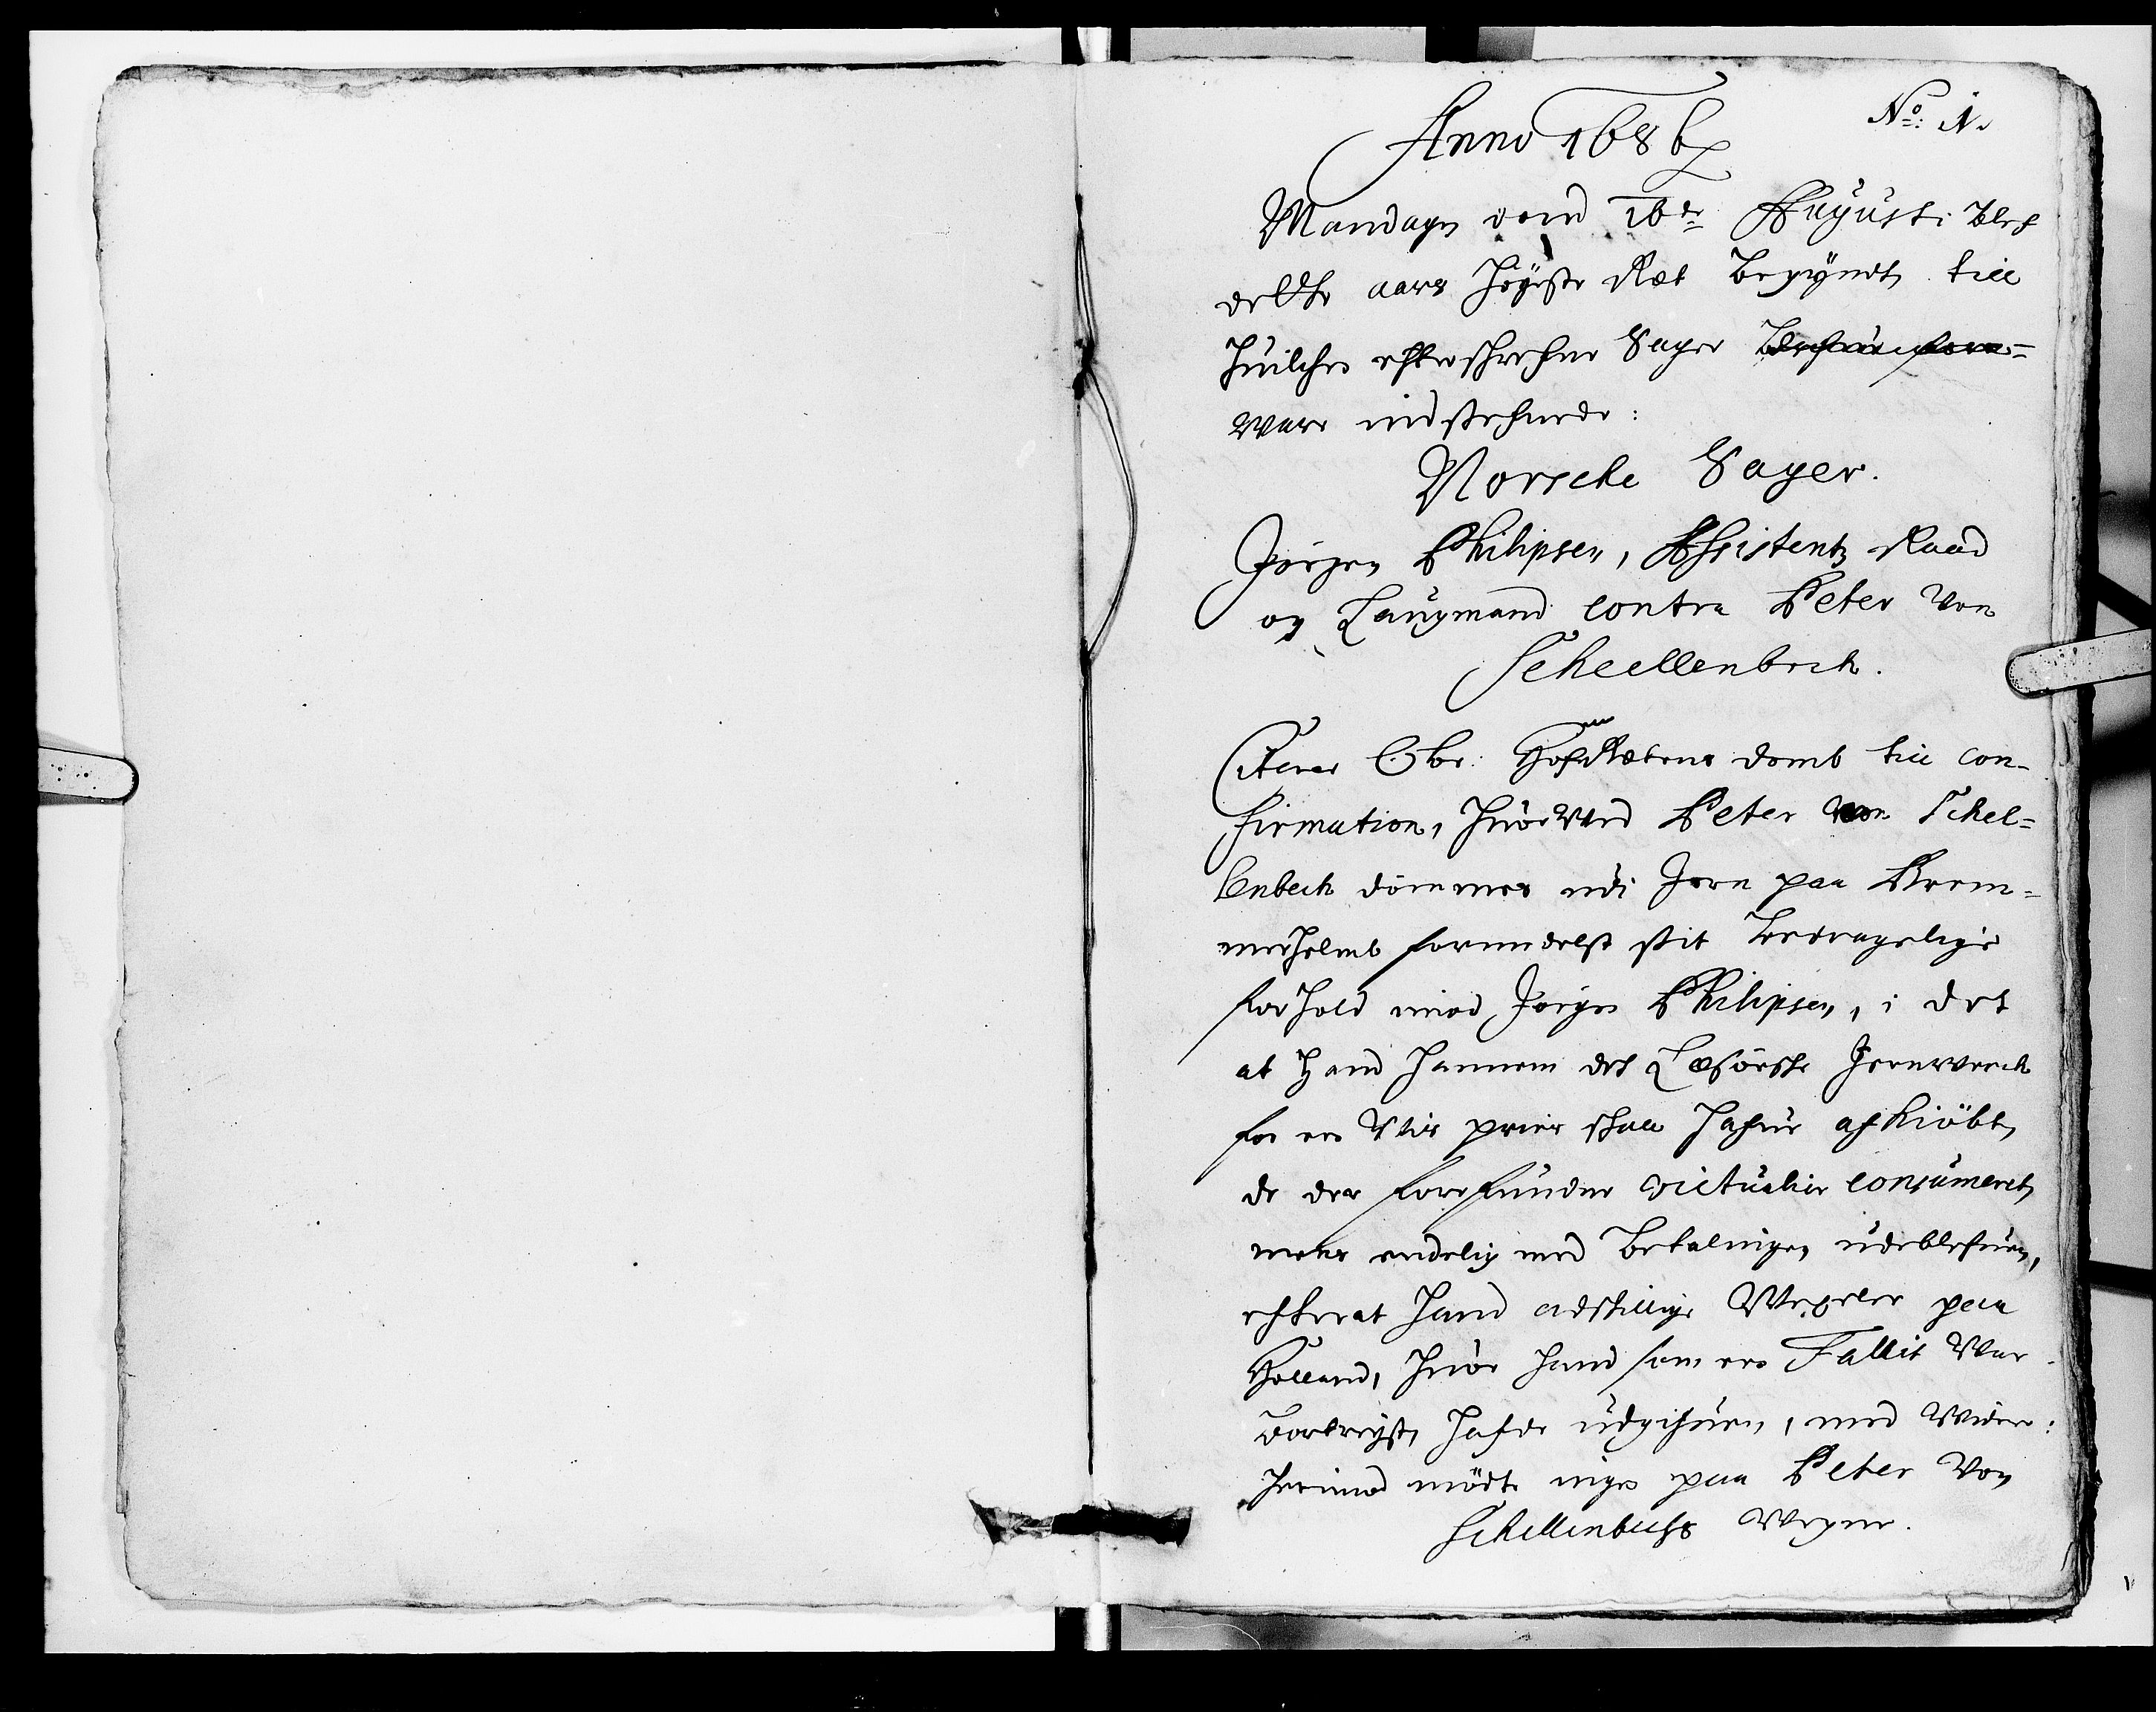 No: 1.
Anno 1686
Mandagen dend 16de Augusti blef
dette aars Høyeste Ret begyndt, till
huilche efterschrefne Sager
ware indstefnede:
Norsche Sager.
Jörgen Philipsen, Assistentz Raad
og Laugmand contra Peter von
Scheellenbech.
Citerer Ober: HofRettens domb till con-
firmation, huorved Peter von Schel-
lenbech dömmes udi Jern paa Brem-
merholmb formedelst sit bedragelige
forhold imod Jörgen Philipsen, i det
at hand hannem det Læsörske Jernverch
for en vis priis schall hafue afkiöbt,
de der forefundne victualier consumeret,
mens endelig med betalingen udeblefuen,
efter at hand adskillige Wexeler paa
Holland, huor hand som en Fallit war
bortreyst, hafde udgifuen, med widere:
herimod mödte ingen paa Peter von
Schellenbechs Wegne.